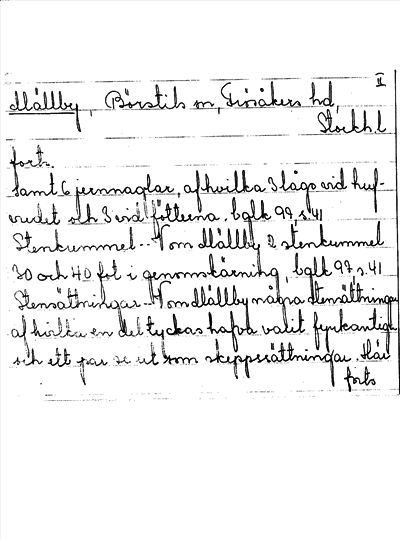 II
Mällby, Börstils sn, Frösåkers hd,
Stockh. l
forts.
samt 6 jernnaglar, af hvilka 3 lågo vid huf-
vudet och 3 vid fötterna. bglk 97, s. 41
Stenkummel - N om Mällby 2 stenkummel
30 och 40 fot i genomskärning, bglk 97, s. 41
Stensättningar - N om Mällby några stensättningar
af hvilka en del tyckas hafva varit fyrkantiga
och ett par se ut som skeppssättningar. Här
forts